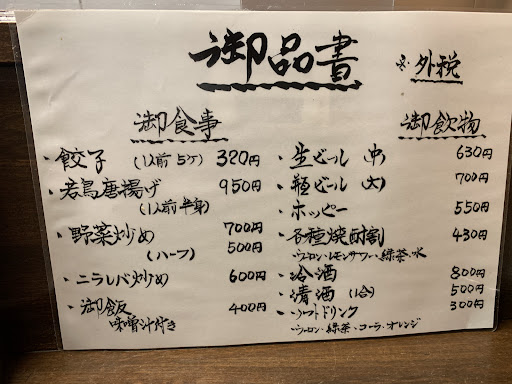 御品書
※外税
御食事
・餃子 (1人前 5ケ) 320円
・若鳥唐揚げ 950円
(1人前 半身)
・野菜炒め 700円
(ハーフ) 500円
・ニラレバ炒め 600円
・御飯 400円
味噌汁付き
御飲物
・生ビール (中) 630円
・瓶ビール (大) 700円
・ホッピー 550円
・各種焼酎割 430円
・ウーロン・レモンサワー・緑茶・水
・冷酒 800円
・清酒 (1合) 500円
・ソフトドリンク 300円
・ウーロン・緑茶・コーラ・オレンジ